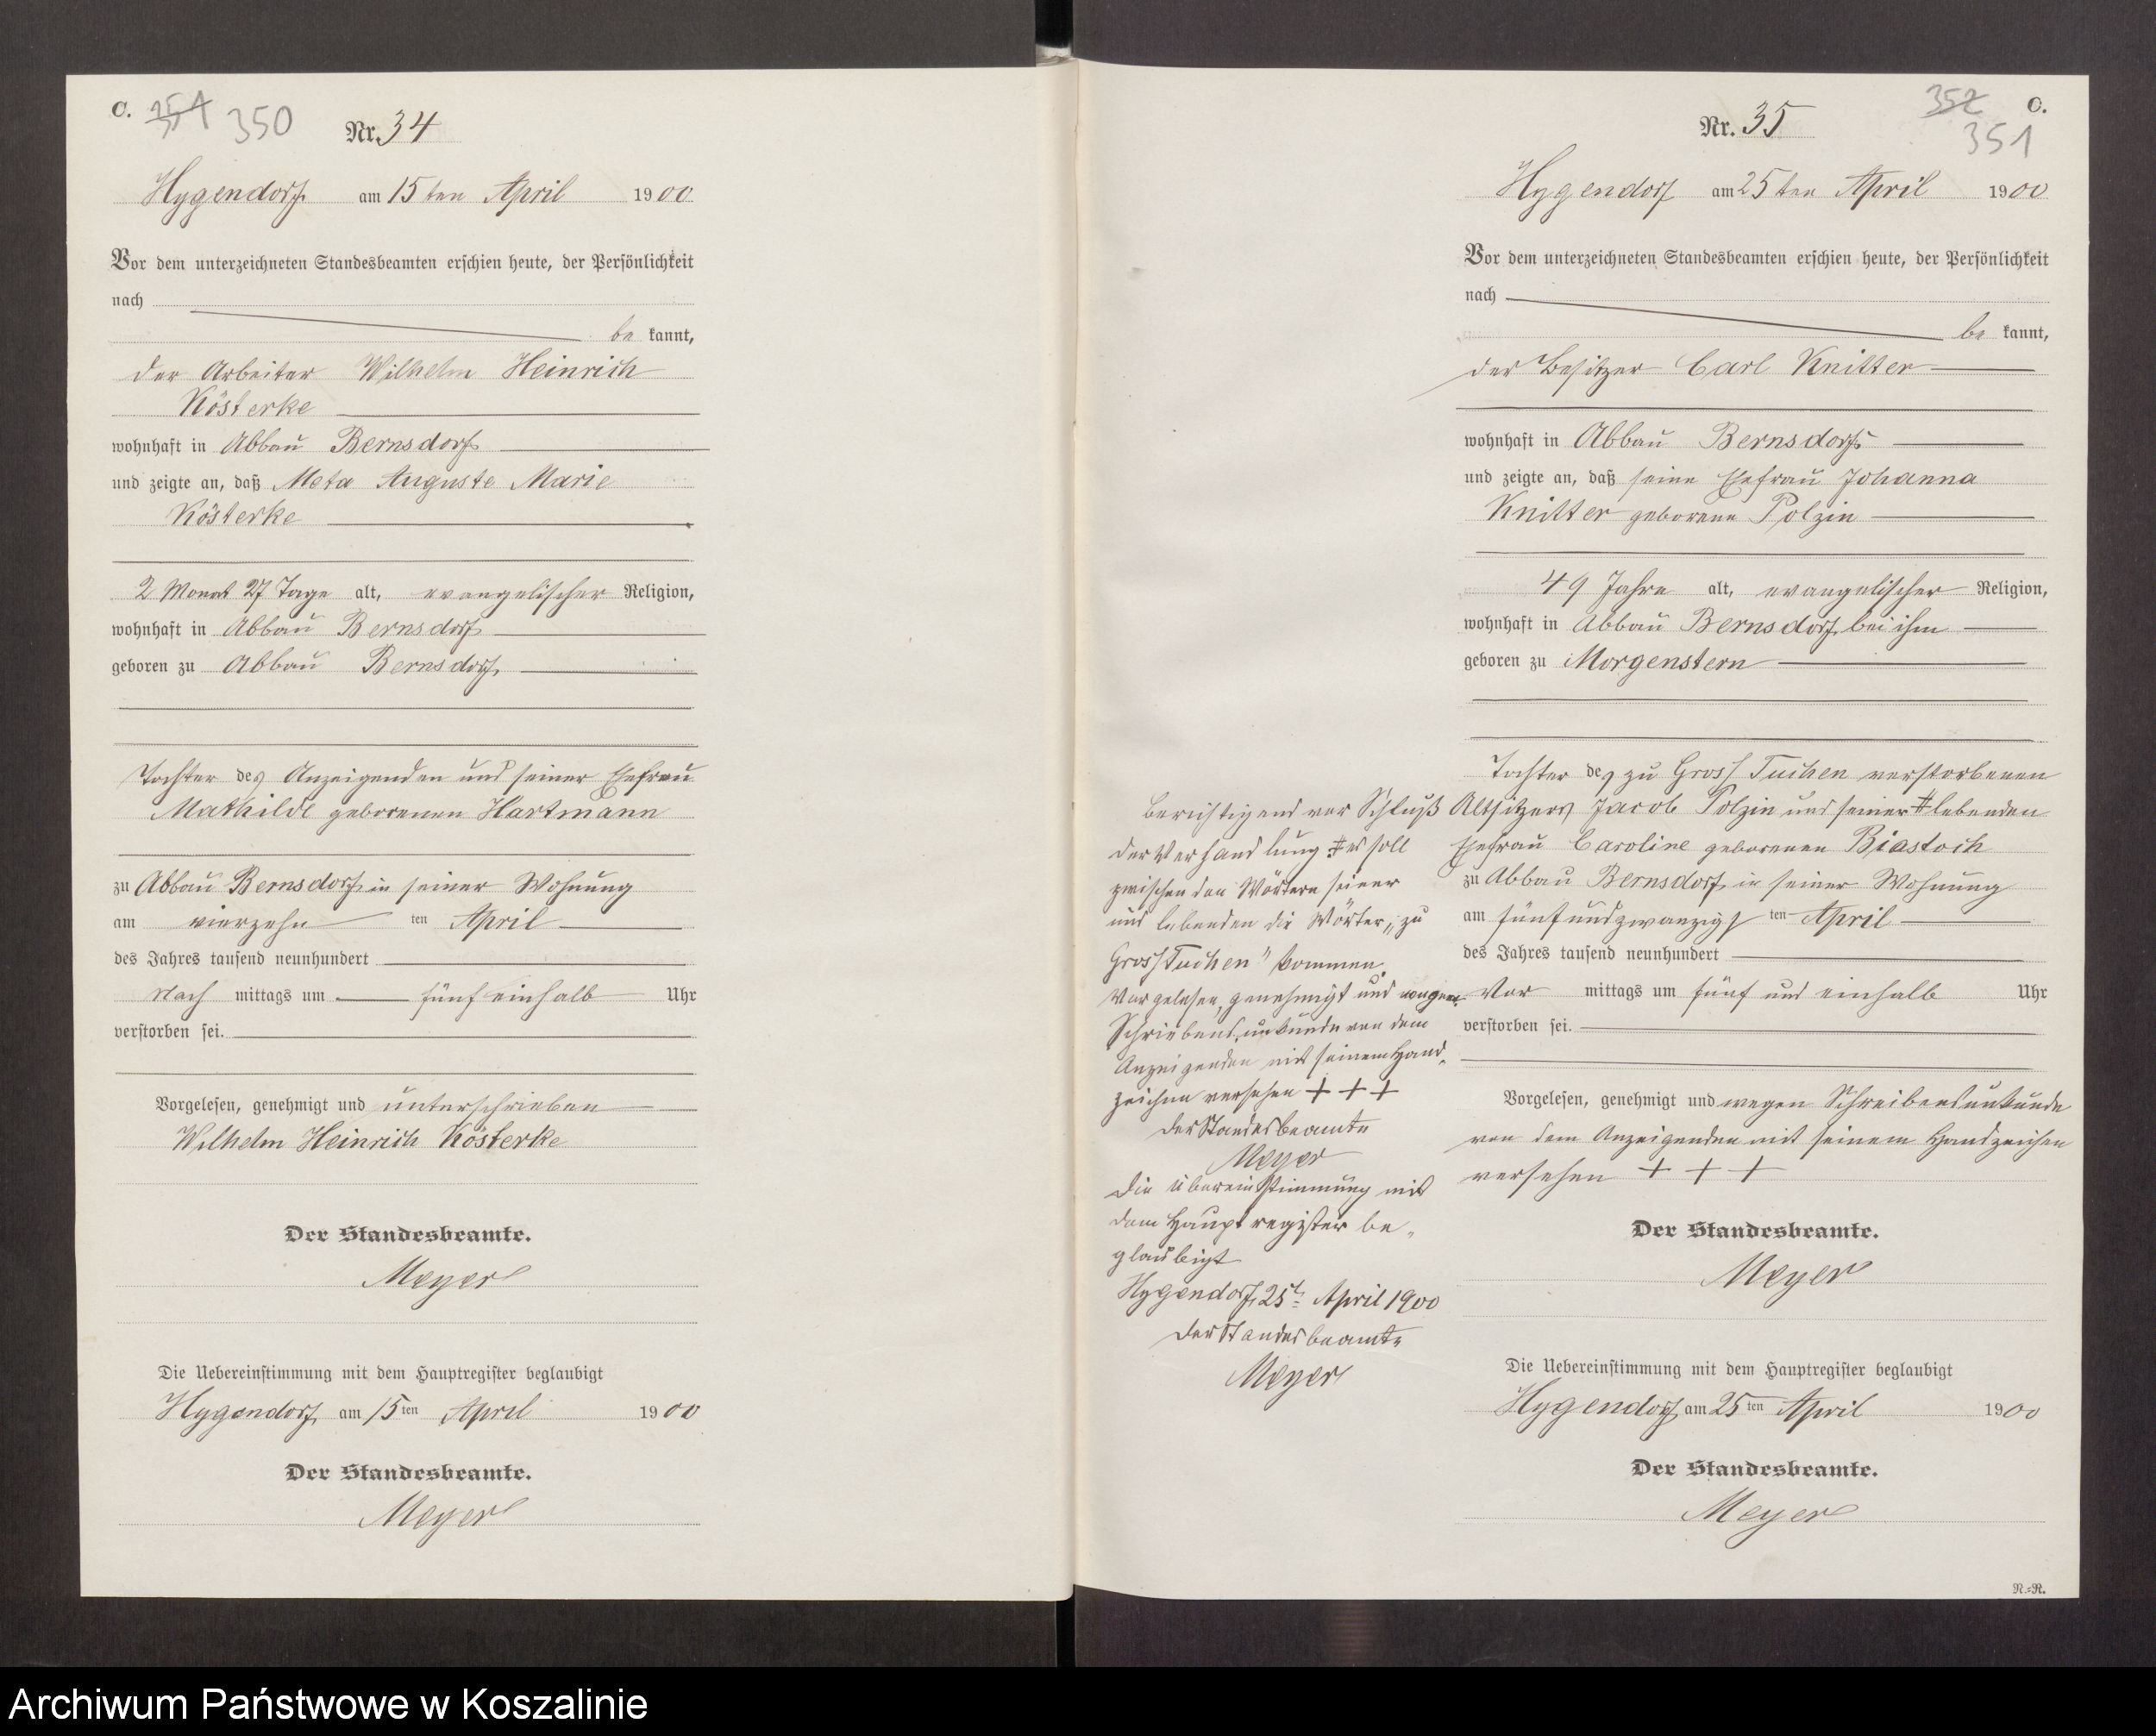 C. 351 350
Nr. 34
Hygendorf am 15ten April 1900
Vor dem unterzeichneten Standesbeamten erschien heute, der Persönlichkeit
nach
be kannt,
der Arbeiter Wilhelm Heinrich
Kösterke
wohnhaft in Abbau Bernsdorf
und zeigte an, daß Meta Auguste Marie
Kösterke
2 Monat 27 Tage alt, evangelischer Religion,
wohnhaft in Abbau Bernsdorf
geboren zu Abbau Bernsdorf
Tochter des Anzeigenden und seiner Ehefrau
Mathilde geborenen Hartmann
zu Abbau Bernsdorf in seiner Wohnung
am vierzehn ten April
des Jahres tausend neunhundert
Nach mittags um fünf einhalb Uhr
verstorben sei.
Vorgelesen, genehmigt und unterschrieben
Wilhelm Heinrich Kösterke
Der Standesbeamte.
Meyer
Die Uebereinstimmung mit dem Hauptregister beglaubigt
Hygendorf am 15ten April 1900
Der Standesbeamte.
Meyer
352 C.
351
Nr. 35
Hygendorf am 25ten April 1900
Vor dem unterzeichneten Standesbeamten erschien heute, der Persönlichkeit
nach
be kannt,
der Besitzer Carl Knitter
wohnhaft in Abbau Bernsdorf
und zeigte an, daß seine Ehefrau Johanna
Knitter geborene Polzin
49 Jahre alt, evangelischer Religion,
wohnhaft in Abbau Bernsdorf bei ihm
geboren zu Morgenstern
Tochter des zu Gross Tuchen verstorbenen
Altsitzers Jacob Polzin und seiner # lebenden
Ehefrau Caroline geborenen Biastoch
zu Abbau Bernsdorf in seiner Wohnung
am fünfundzwanzigs ten April
des Jahres tausend neunhundert
Vor mittags um fünf und einhalb Uhr
verstorben sei.
Vorgelesen, genehmigt und wegen Schreibensunkunde
von dem Anzeigenden mit seinem Handzeichen
versehen + + +
Der Standesbeamte.
Meyer
Die Uebereinstimmung mit dem Hauptregister beglaubigt
Hygendorf am 25ten April 1900
Der Standesbeamte.
Meyer
N.=R.
Berichtigend vor Schluß
der Verhandlung # es soll
zwischen den Wörtern seiner
und lebenden die Wörter „zu
Gross Tuchen" kommen.
Vorgelesen, genehmigt und wegen
Schreibensunkunde von dem
Anzeigenden mit seinem Hand-
zeichen versehen + + +
Der Standesbeamte
Meyer
Die Übereinstimmung mit
dem Hauptregister be-
glaubigt
Hygendorf, 25t April 1900
Der Standesbeamte
Meyer
Archiwum Państwowe w Koszalinie